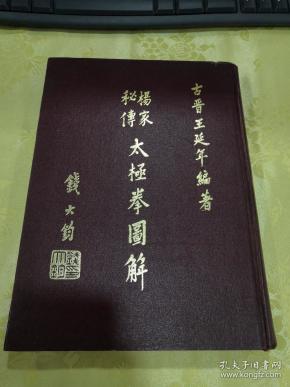 古晋王延年編著
楊家
秘傳
太極拳圖解
錢大鈞
孔夫子旧书网